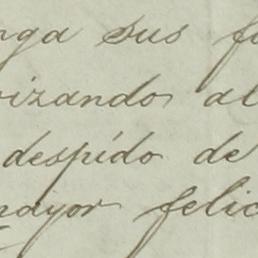 nga sus fa
rizando al
despido de
mayor felic